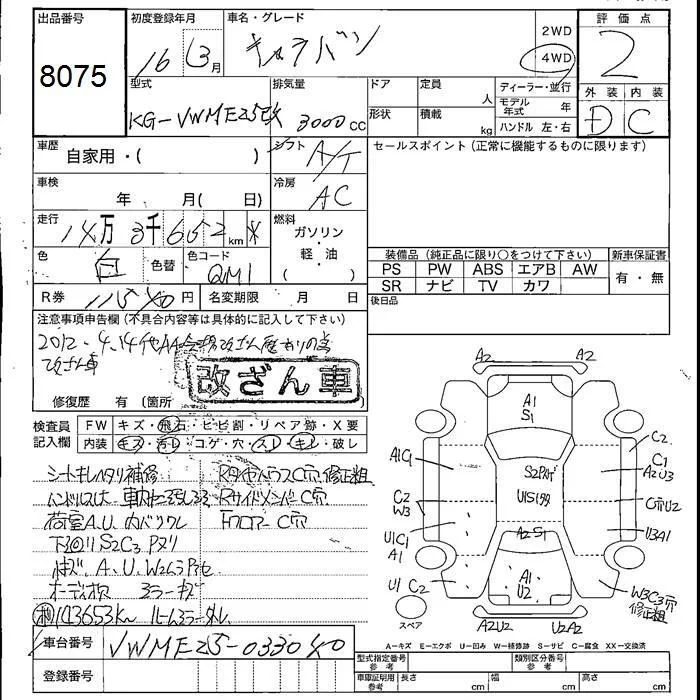 出品番号 初度登録年月 車名・グレード 評価点
8075 16年3月 キャラバン 2WD 4WD 2
型式 排気量 ドア 定員 人 ディーラー・並行 外装 内装
KG-VWME25改 3000cc 形状 積載 kg モデル年式 年 ハンドル 左・右 D C
車歴 自家用・( ) シフト A/T セールスポイント(正常に機能するものに限ります)
車検 年 月( 日) 冷房 AC
走行 14万3千652km * 燃料 ガソリン・軽・油 ( )
色 白 色替 色コード QM1 装備品(純正品に限り○をつけて下さい) 新車保証書
PS PW ABS エアB AW 有・無
SR ナビ TV カワ
R券 円 名変期限 月 日 後日品
注意事項申告欄(不具合内容等は具体的に記入して下さい)
2012.4.14 改ざん車
改ざん車
修復歴 有(箇所
検査員記入欄 FW キズ・飛石・ヒビ割・リペア跡・X要
内装 キズ・汚レ・コゲ・穴・スレ・キレ・破レ
シートキレヘタリ補修 C穴 修正粗
ハンドルスレ大 C穴
荷室A.U. 内バリワレ Fフロアー C穴
下回リS2C3 Pヌリ
A、U、W2
オーディオ欠 ミラーキズ
143653km
車台番号 VWME25-033040
登録番号
A1 S1
A2 A2
A1G
C2 W3
U1C1 A1
U1 C2
A2S1
A1 U2
C2
C1 A2U3
C穴U2
U3A1
W3C3穴 修正粗
スペア A2U2 U2A2
A=キズ E=エクボ U=凹み W=補修跡 S=サビ C=腐食 XX=交換済
型式指定番号 参考 類別区分番号 参考
車庫証明用 参考 長さ cm 幅 cm 高さ cm